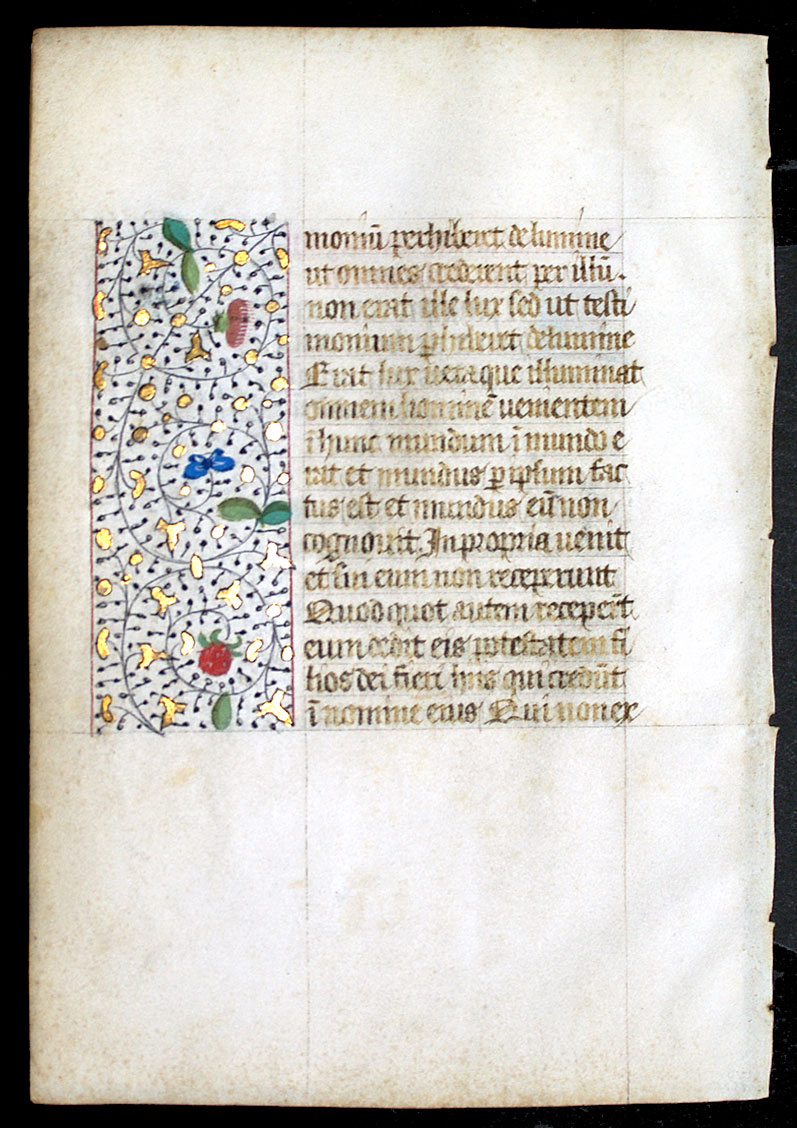 moniū perhiberet de lumine
ut omnes crederent per illū.
non erat ille lux sed ut testi
monium phiberet de lumine
Erat lux vera que illuminat
omnem hominē venientem
ī hunc mundum ī mundo e
rat et mundus p ipsum fac
tus est et mundus eū non
cognovit. In propria venit
et sui eum non receperunt
Quodquot autem receperūt
eum dedit eis potestatem fi
lios dei fieri hiis qui credūt
ī nomine eius Qui non ex